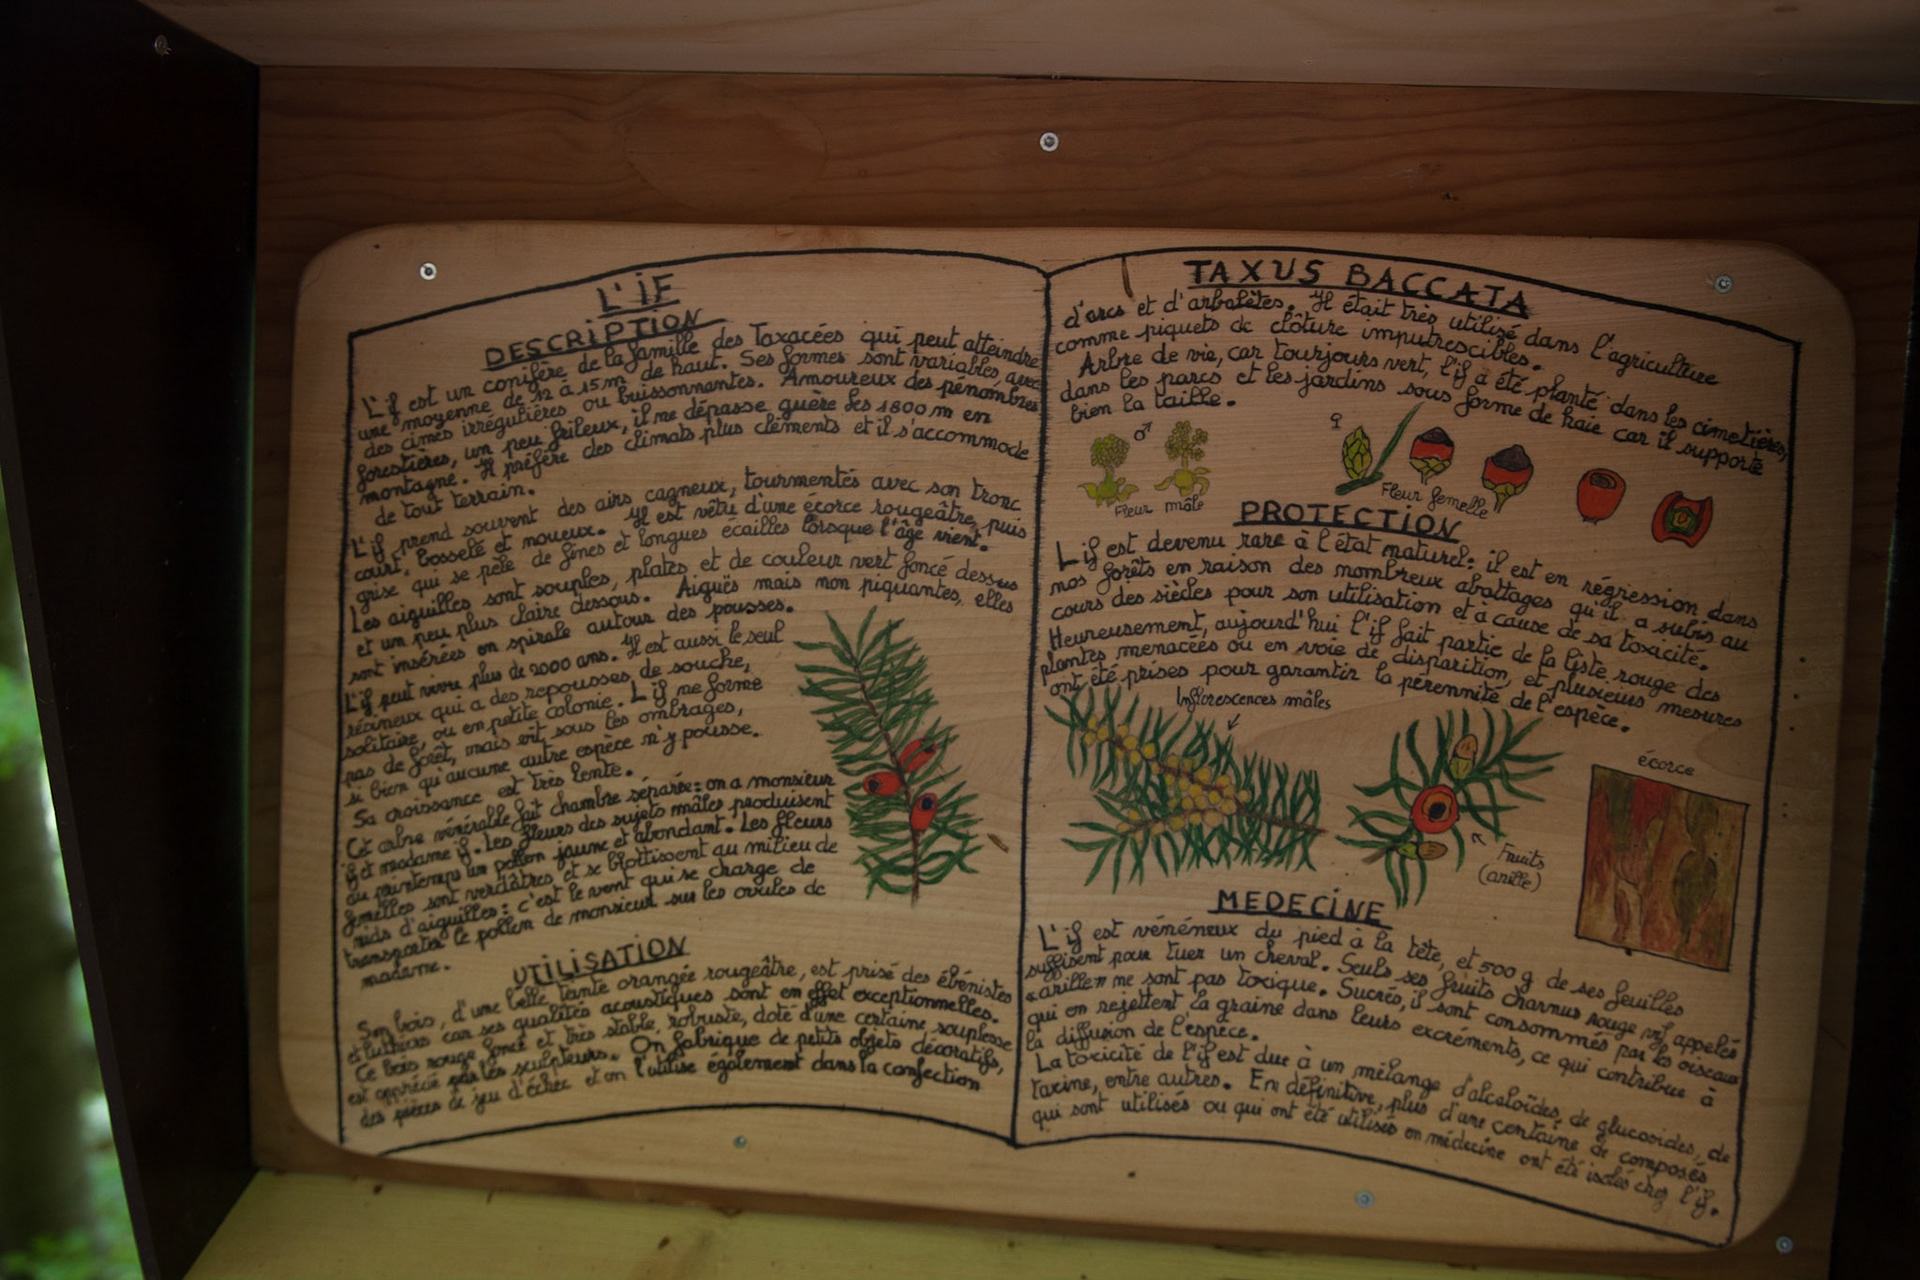 L'iF
DESCRiPTiON
L'if est un conifère de la famille des Taxacées qui peut atteindre
une moyenne de 12 à 15m de haut. Ses formes sont variables, avec
des cimes irrégulières ou buissonnantes. Amoureux des pénombres
forestières, un peu frileux, il ne dépasse guère les 1800 m en
montagne. Il préfère des climats plus cléments et il s'accommode
de tout terrain.
L'if prend souvent des airs cagneux, tourmentés avec son tronc
court, bosselé et noueux. Il est vêtu d'une écorce rougeâtre, puis
grise qui se pèle de fines et longues écailles lorsque l'âge vient.
Les aiguilles sont souples, plates et de couleur vert foncé dessus
et un peu plus claire dessous. Aiguës mais non piquantes, elles
sont insérées en spirale autour des pousses.
L'if peut vivre plus de 2000 ans. Il est aussi le seul
résineux qui a des repousses de souche,
solitaire, ou en petite colonie. L'if ne forme
pas de forêt, mais vit sous les ombrages,
si bien qu'aucune autre espèce n'y pousse.
Sa croissance est très lente.
Cet arbre vénérable fait chambre séparée: on a monsieur
if et madame if. Les fleurs des sujets mâles produisent
au printemps un pollen jaune et abondant. Les fleurs
femelles sont verdâtres et se blottissent au milieu de
nids d'aiguilles: c'est le vent qui se charge de
transporter le pollen de monsieur sur les ovules de
madame.
UTiLiSATiON
Son bois, d'une belle teinte orangée rougeâtre, est prisé des ébénistes
et luthiers car ses qualités acoustiques sont en effet exceptionnelles.
Ce bois rouge foncé et très stable, robuste, doté d'une certaine souplesse
est apprécié par les sculpteurs. On fabrique de petits objets décoratifs,
des pièces de jeu d'échec et on l'utilise également dans la confection
TAXUS BACCATA
d'arcs et d'arbalètes. Il était très utilisé dans l'agriculture
comme piquets de clôture imputrescibles.
Arbre de vie, car tourjours vert, l'if a été planté dans les cimetières,
dans les parcs et les jardins sous forme de haie car il supporte
bien la taille.
♂
♀
Fleur mâle
Fleur femelle
PROTECTiON
L'if est devenu rare à l'état naturel: il est en régression dans
nos forêts en raison des nombreux abattages qu'il a subis au
cours des siècles pour son utilisation et à cause de sa toxicité.
Heureusement, aujourd'hui l'if fait partie de la liste rouge des
plantes menacées ou en voie de disparition, et plusieurs mesures
ont été prises pour garantir la pérennité de l'espèce.
Inflorescences mâles
écorce
Fruits
(arille)
MEDECiNE
L'if est vénéneux du pied à la tête, et 500 g de ses feuilles
suffisent pour tuer un cheval. Seuls ses fruits charnus rouge vif appelés
"arille" ne sont pas toxique. Sucrés, il sont consommés par les oiseaux
qui en rejettent la graine dans leurs excréments, ce qui contribue à
la diffusion de l'espèce.
La toxicité de l'if est due à un mélange d'alcaloïdes, de glucosides, de
taxine, entre autres. En définitive, plus d'une centaine de composés
qui sont utilisés ou qui ont été utilisés en médecine ont été isolés chez l'if.